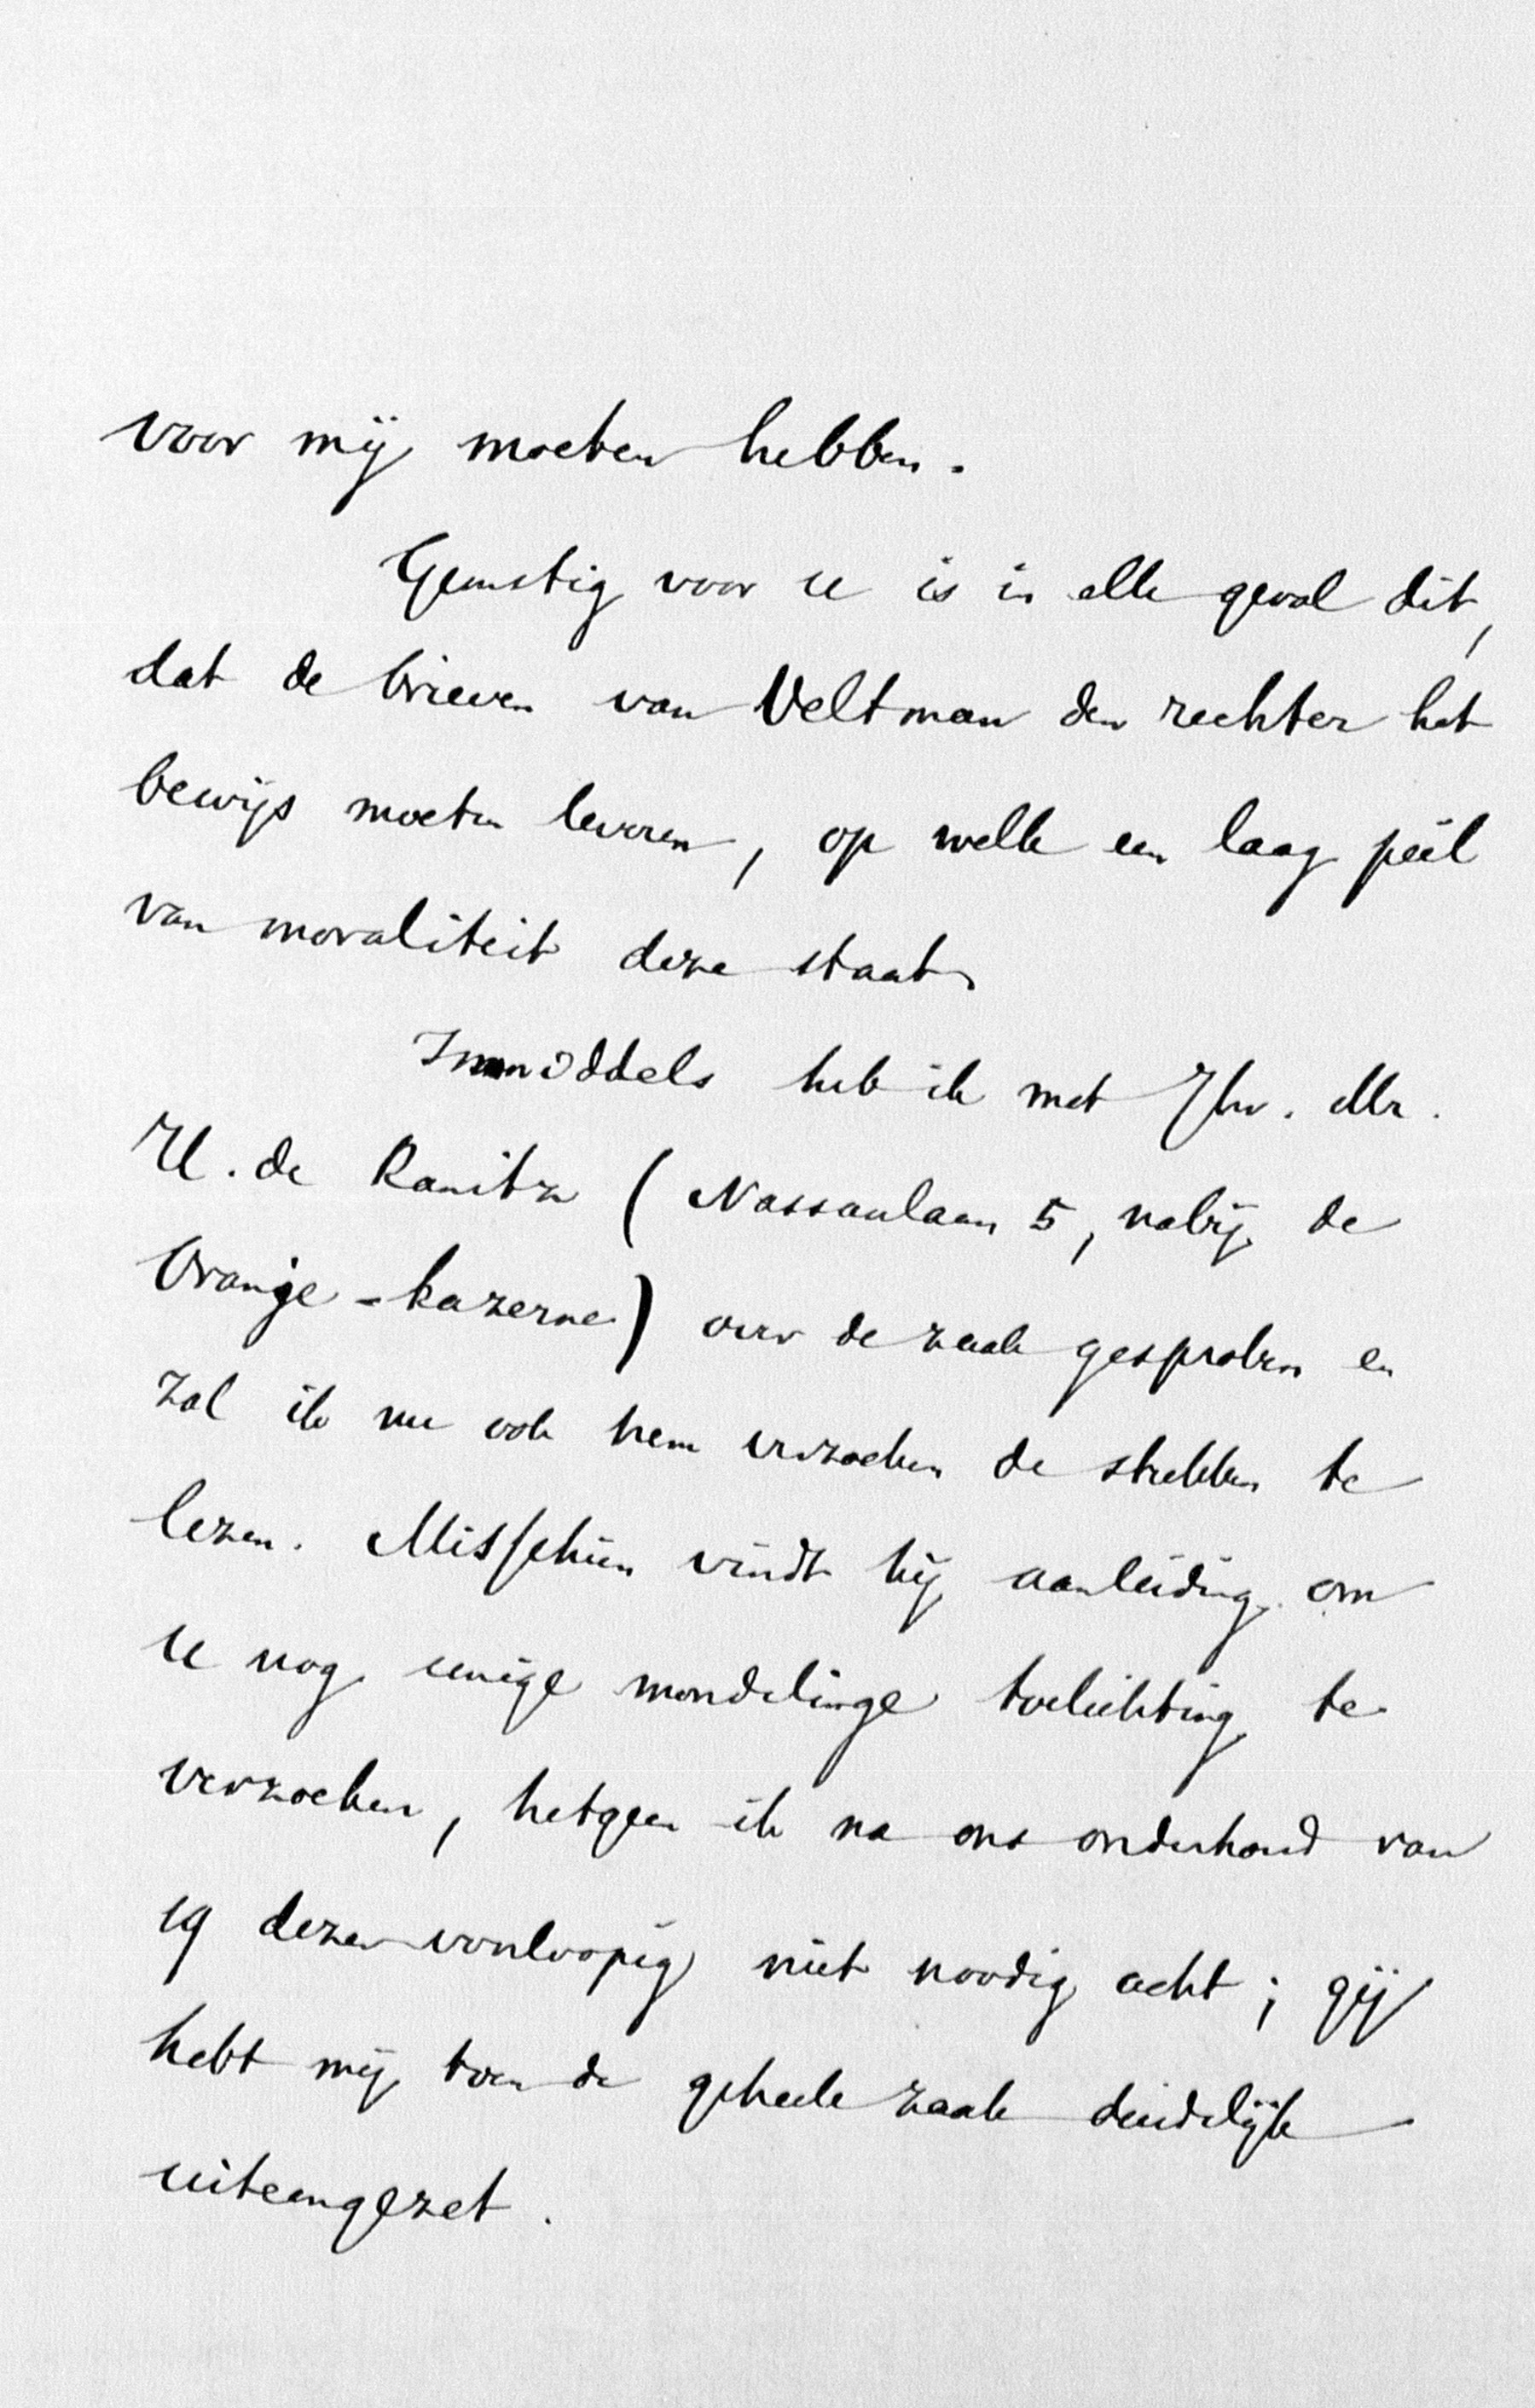 voor mij moeten hebben.
Gunstig voor u is in elk geval dit,
dat de brieven van Veltman den rechter het
bewijs moeten leveren, op welk een laag peil
van moraliteit deze staat.
Inmiddels heb ik met Jhr. Mr.
U. de Ranitz (Nassaulaan 5, nabij de
Oranje-kazerne) over de zaak gesproken en
zal ik nu ook hem verzoeken de stukken te
lezen. Misschien vindt hij aanleiding om
u nog eenige mondelinge toelichting te
verzoeken, hetgeen ik na ons onderhoud van
19 dezer voorloopig niet noodig acht; gij
hebt mij toen de geheele zaak duidelijk
uiteengezet.